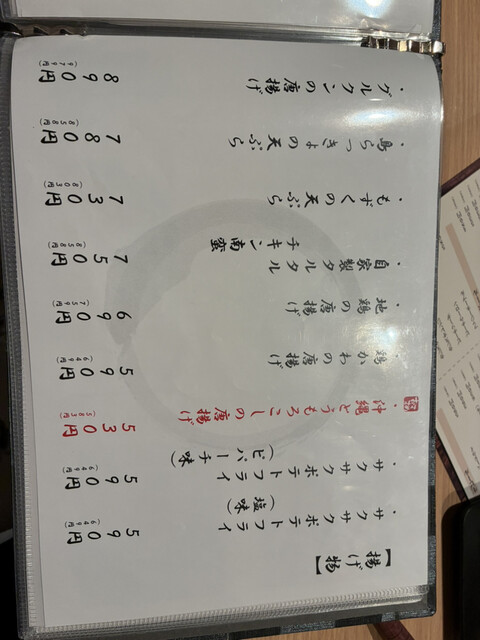 【揚げ物】
・サクサクポテトフライ
(塩味)
590円
(649円)
・サクサクポテトフライ
(ピパーチ味)
590円
(649円)
・沖縄とうもろこしの唐揚げ
530円
(583円)
・鶏かわの唐揚げ
590円
(649円)
・地鶏の唐揚げ
690円
(759円)
・自家製タルタル
チキン南蛮
750円
(858円)
・もずくの天ぷら
730円
(803円)
・島らっきょの天ぷら
780円
(858円)
・グルクンの唐揚げ
890円
(979円)